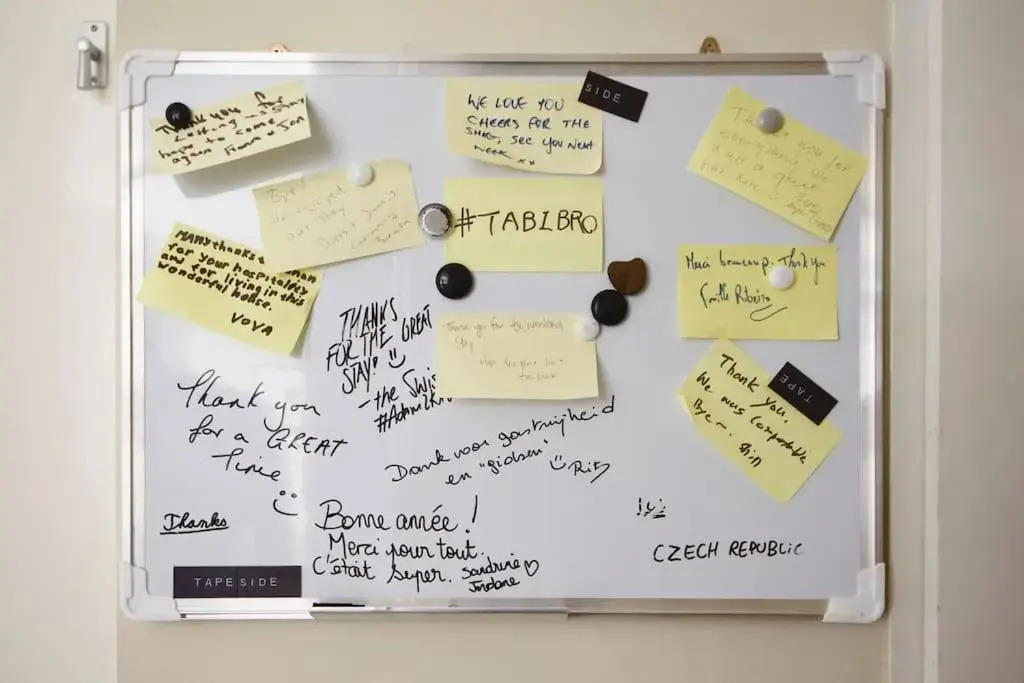 Thank you for
letting us stay
hope to come
again from
Jon
WE LOVE YOU
CHEERS FOR THE
SHAG, SEE YOU NEXT
WEEK xx
SIDE
you for
everything. We
had a great
time here
Bye!
We enjoyed
our stay
#TABIBRO
MANY thanks
for your hospitality
and for living in this
wonderful house.
VOVA
Merci beaucoup. Thank you
Famille Ribeiro
THANKS
FOR THE GREAT
STAY!
- the Swis
Thank you for the wonderful
Stay
Thank you.
We was Comfortable
Bye
TAPE
Thank you
for a GREAT
Time
Dank voor gastvrijheid
en "gidsen"
Thanks
Bonne année!
Merci pour tout.
C'était super. Sandrine
CZECH REPUBLIC
TAPE SIDE